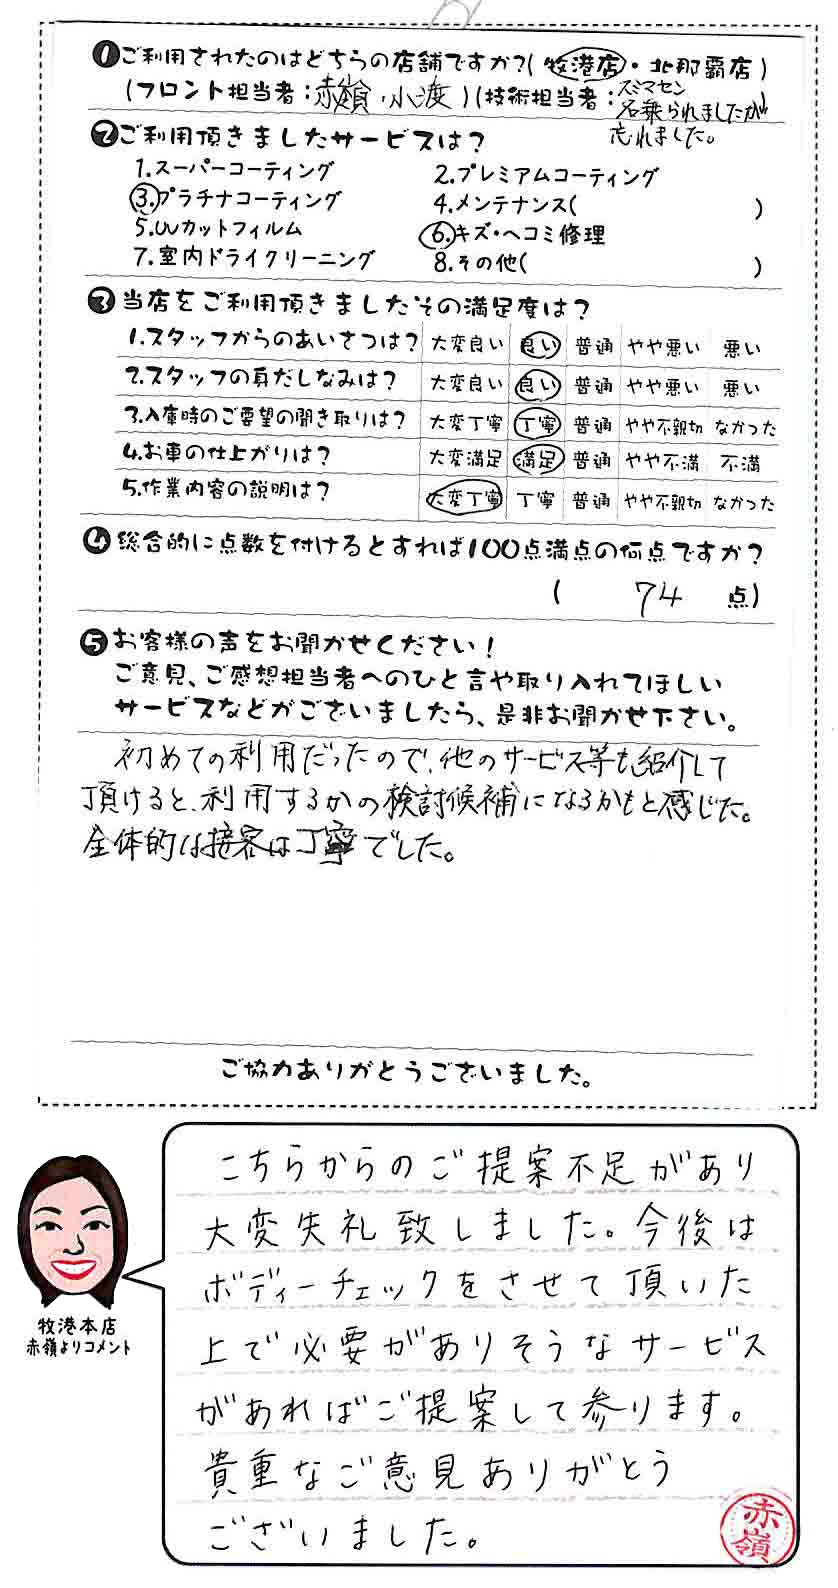 ❶ご利用されたのはどちらの店舗ですか?(牧港店・北那覇店)
(フロント担当者:赤嶺、小渡)(技術担当者:スミマセン
名乗られましたが
忘れました。
❷ご利用頂きましたサービスは?
1.スーパーコーティング 2.プレミアムコーティング
3.プラチナコーティング 4.メンテナンス( )
5.UVカットフィルム 6.キズ・ヘコミ修理
7.室内ドライクリーニング 8.その他( )
❸当店をご利用頂きましたその満足度は?
1.スタッフからのあいさつは? 大変良い 良い 普通 やや悪い 悪い
2.スタッフの身だしなみは? 大変良い 良い 普通 やや悪い 悪い
3.入庫時のご要望の聞き取りは? 大変丁寧 丁寧 普通 やや不親切 なかった
4.お車の仕上がりは? 大変満足 満足 普通 やや不満 不満
5.作業内容の説明は? 大変丁寧 丁寧 普通 やや不親切 なかった
❹総合的に点数を付けるとすれば100点満点の何点ですか?
( 74 点)
❺お客様の声をお聞かせください!
ご意見、ご感想担当者へのひと言や取り入れてほしい
サービスなどがございましたら、是非お聞かせ下さい。
初めての利用だったので、他のサービス等も紹介して
頂けると、利用するかの検討候補になるかもと感じた。
全体的は接客は丁寧でした。
ご協力ありがとうございました。
こちらからのご提案不足があり
大変失礼致しました。今後は
ボディーチェックをさせて頂いた
上で必要がありそうなサービス
があればご提案して参ります。
貴重なご意見ありがとう
ございました。
牧港本店
赤嶺よりコメント
赤嶺